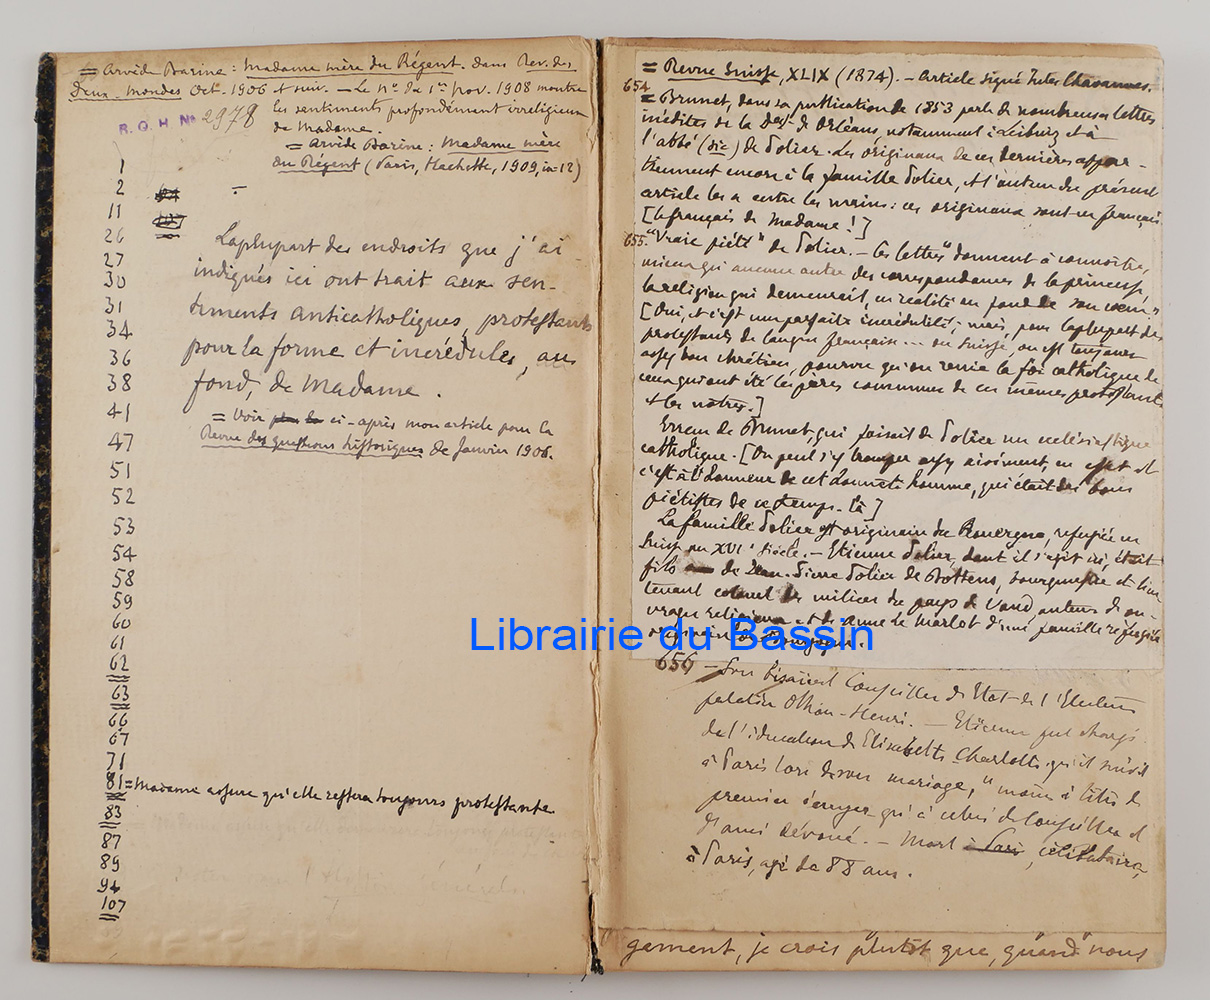 = Arvède Barine : Madame mère du Régent. dans Rev. des
Deux-Mondes Oct. 1906 et suiv. — Le No du 1er nov. 1908 montre
les sentiments profondément irreligieux
de Madame.
R. Q. H No 2978
= Arvède Barine : Madame mère
du Régent (Paris, Hachette, 1909, in-12)
1
2
11
26
27
30
31
34
36
38
41
47
51
52
53
54
58
59
60
61
62
63
66
67
71
81 = Madame assure qu'elle restera toujours protestante
83
87
89
94
107
La plupart des endroits que j'ai
indiqués ici ont trait aux sen-
timents anticatholiques, protestants
pour la forme et incrédules, au
fond, de Madame.
= Voir ci-après mon article pour la
Revue des questions historiques de Janvier 1906.
= Revue Suisse, XLIX (1874). — Article signé Jules Chavannes.
654
= Brunet, dans sa publication de 1853 parle de nombreuses lettres
inédites de la Desse de Orléans, notamment à Leibniz et à
l'abbé (sic) de Polier. Les originaux de ces dernières appar-
tiennent encore à la famille Polier, et l'auteur du présent
article les a entre les mains : ces originaux sont en français
[le français de Madame !]
655. "Vraie piété" de Polier. — Ces lettres "donnent à connaître,
mieux qu'aucune autre des correspondances de la princesse,
la religion qui demeurait, en réalité au fond de son cœur."
[Oui, et c'est une parfaite incrédulité ; mais, pour la plupart des
protestants de langue française... ou Suisse, on est toujours
assez bon chrétien, pourvu qu'on renie la foi catholique de
ceux qui ont été les pères communs de ces mêmes protestants
et les nôtres.]
Erreur de Brunet, qui faisait de Polier un ecclésiastique
catholique. [On peut s'y tromper assez aisément, en effet et
c'est à l'honneur de cet honnête homme, qui était des bons
piétistes de ce temps-là]
La famille Polier est originaire du Rouergue, refugiée en
Suisse au XVIe siècle. — Etienne Polier, dont il s'agit ici, était
fils de Jean-Pierre Polier de Bottens, bourgmestre et lieu
tenant colonel des milices du pays de Vaud, auteur de ou-
vrages religieux et de Anne de Marlot d'une famille refugiée
originaire de
Librairie du Bassin
656 — Son bisaïeul Conseiller d'Etat de l'Electeur
palatin Othon-Henri. — Etienne fut chargé
de l'éducation d'Elisabeth Charlotte qu'il suivit
à Paris lors de son mariage, "moins à titre de
premier écuyer qu'à celui de Conseiller et
d'ami dévoué. — Mort à Paris, célibataire,
à Paris, agé de 88 ans.
gement, je crois plutôt que, quand nous